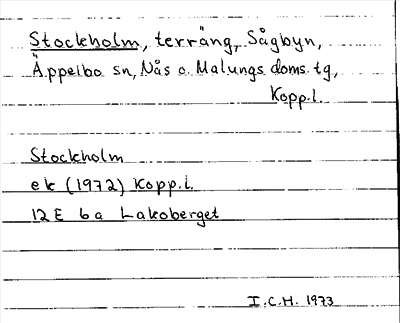 Stockholm, terräng, Sågbyn,
Äppelbo sn, Nås o. Malungs doms. tg,
Kopp. l.
Stockholm
ek (1972) Kopp. l.
12 E 6 a Lakoberget
I.C.H. 1973